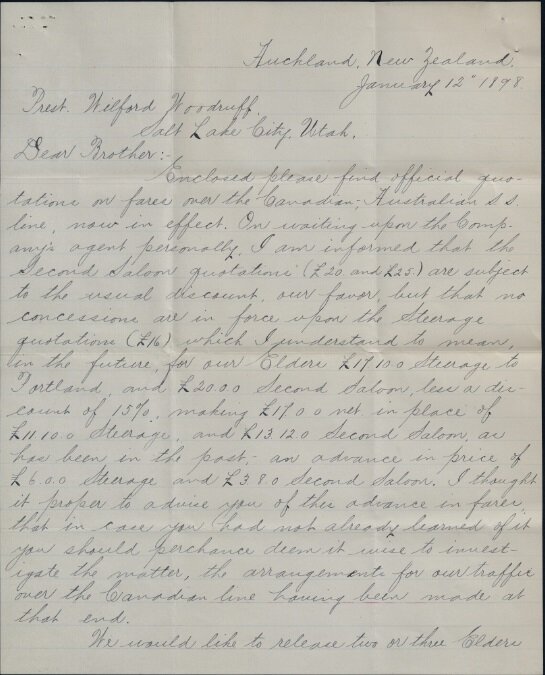 Auckland, New Zealand.
January 12" 1898.
Prest. Wilford Woodruff,
Salt Lake City, Utah.
Dear Brother:-
Enclosed please find official quo-
tations on fares over the Canadian-Australian s.s.
line, now in effect. On waiting upon the Comp-
any's agent personally, I am informed that the
Second Saloon quotations (£20 and £25) are subject
to the usual discount, our favor, but that no
concessions are in force upon the Steerage
quotations (£16) which I understand to mean,
in the future, for our Elders £17.10.0 Steerage to
Portland, and £20.0.0 Second Saloon, less a dis-
count of 15%, making £17.0.0 net in place of
£11.10.0 Steerage, and £13.12.0 Second Saloon, as
has been in the past,- an advance in price of
£6.0.0 Steerage and £3.8.0 Second Saloon. I thought
it proper to advise you of this advance in fares,
that in case you had not already learned of it
you should perchance deem it wise to invest-
igate the matter, the arrangements for our traffic
over the Canadian line having been made at
that end.
We would like to release two or three Elders